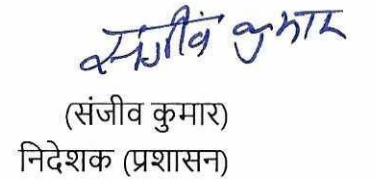 संजीव कुमार
(संजीव कुमार)
निदेशक (प्रशासन)